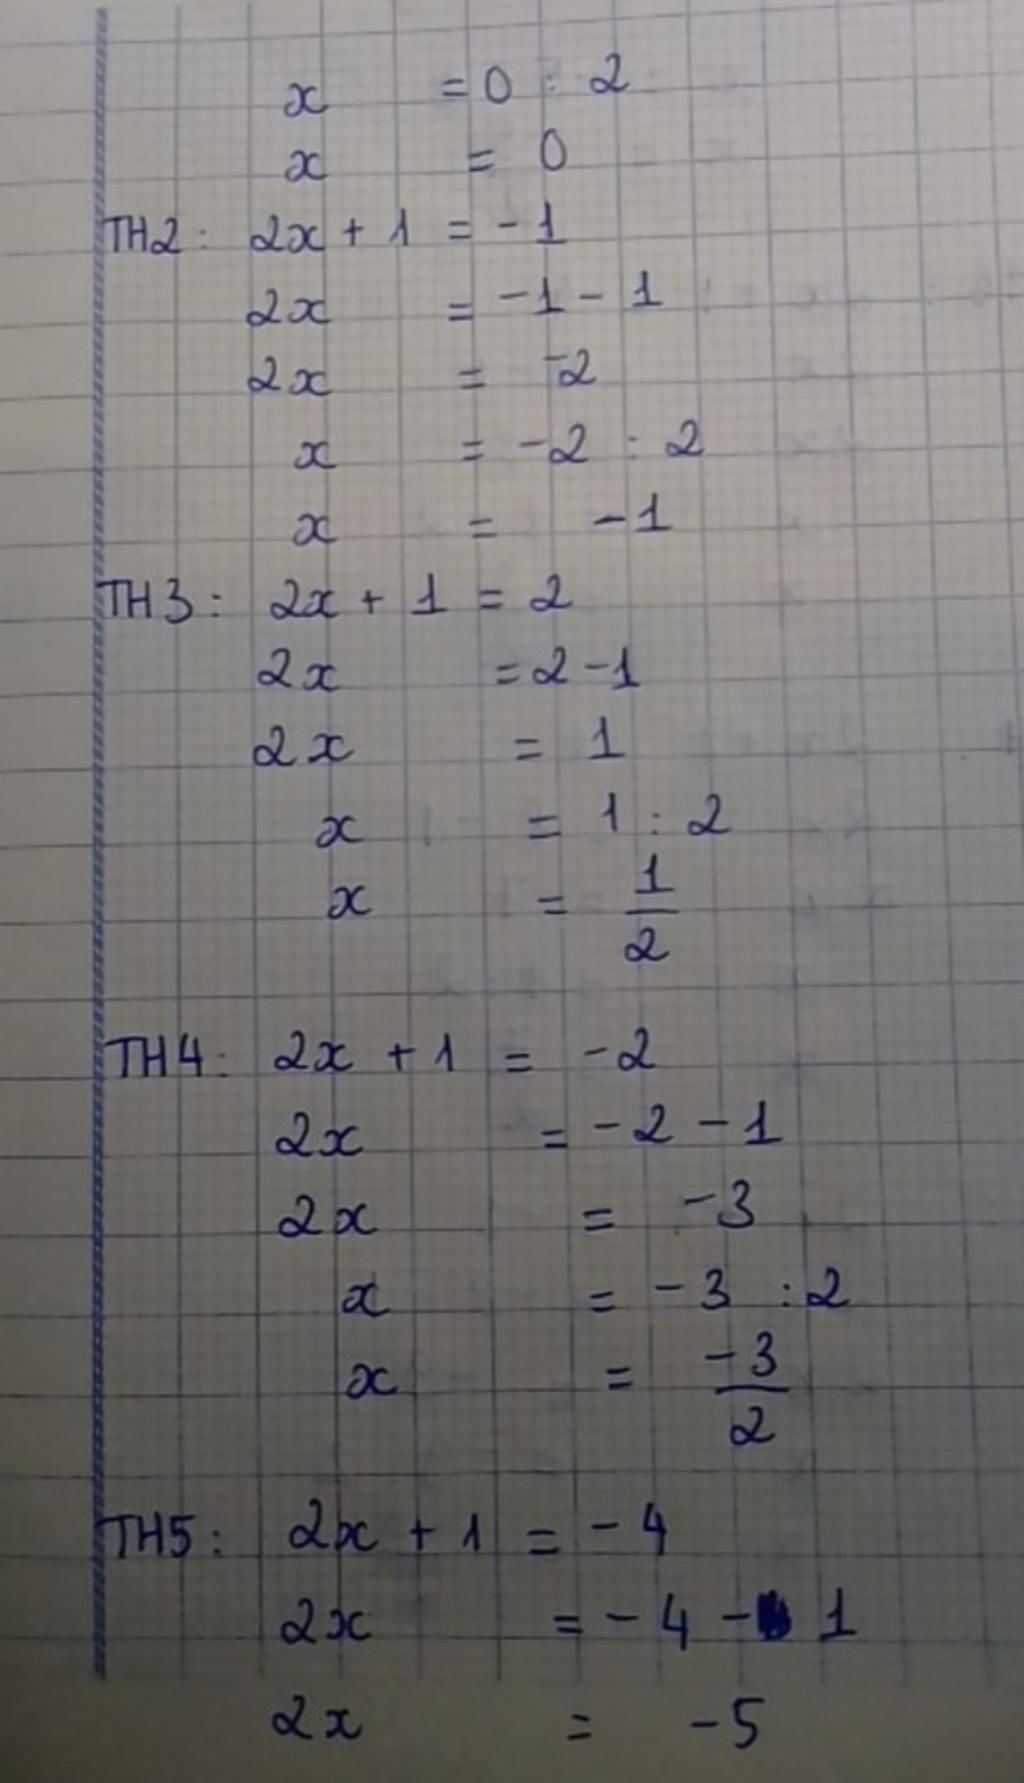 x = 0 : 2
x = 0
TH2 : 2x + 1 = - 1
2x = - 1 - 1
2x = -2
x = - 2 : 2
x = - 1
TH3 : 2x + 1 = 2
2x = 2 - 1
2x = 1
x = 1 : 2
x = 1/2
TH4 : 2x + 1 = - 2
2x = - 2 - 1
2x = - 3
x = - 3 : 2
x = -3/2
TH5 : 2x + 1 = - 4
2x = - 4 - 1
2x = - 5